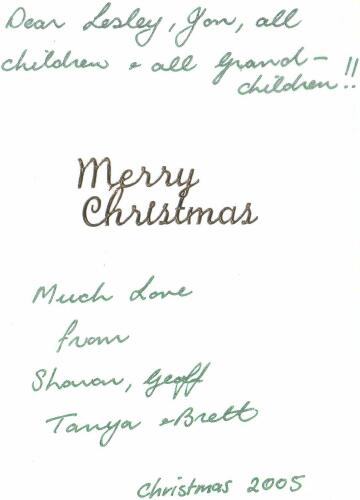 Dear Lesley, Jon, all
children & all Grand-
children!!
Merry
Christmas
Much Love
from
Sharon, Geoff
Tanya & Brett
Christmas 2005